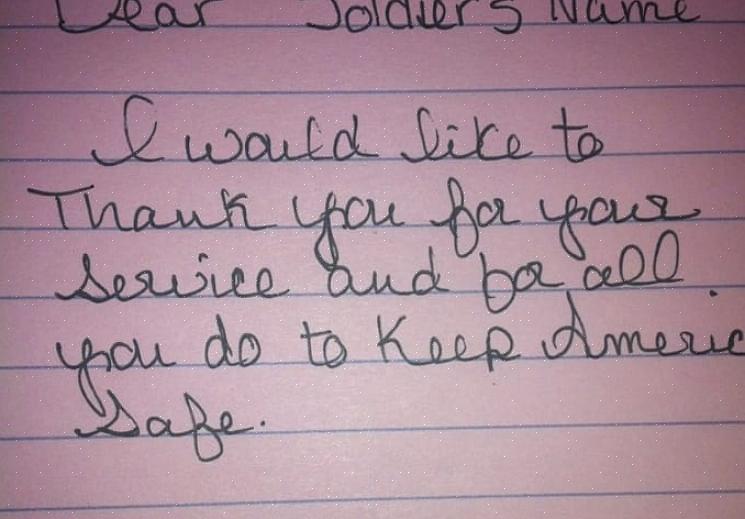 Dear Soldier's Name
I would like to
Thank you for your
service and for all
you do to Keep Americ
Safe.